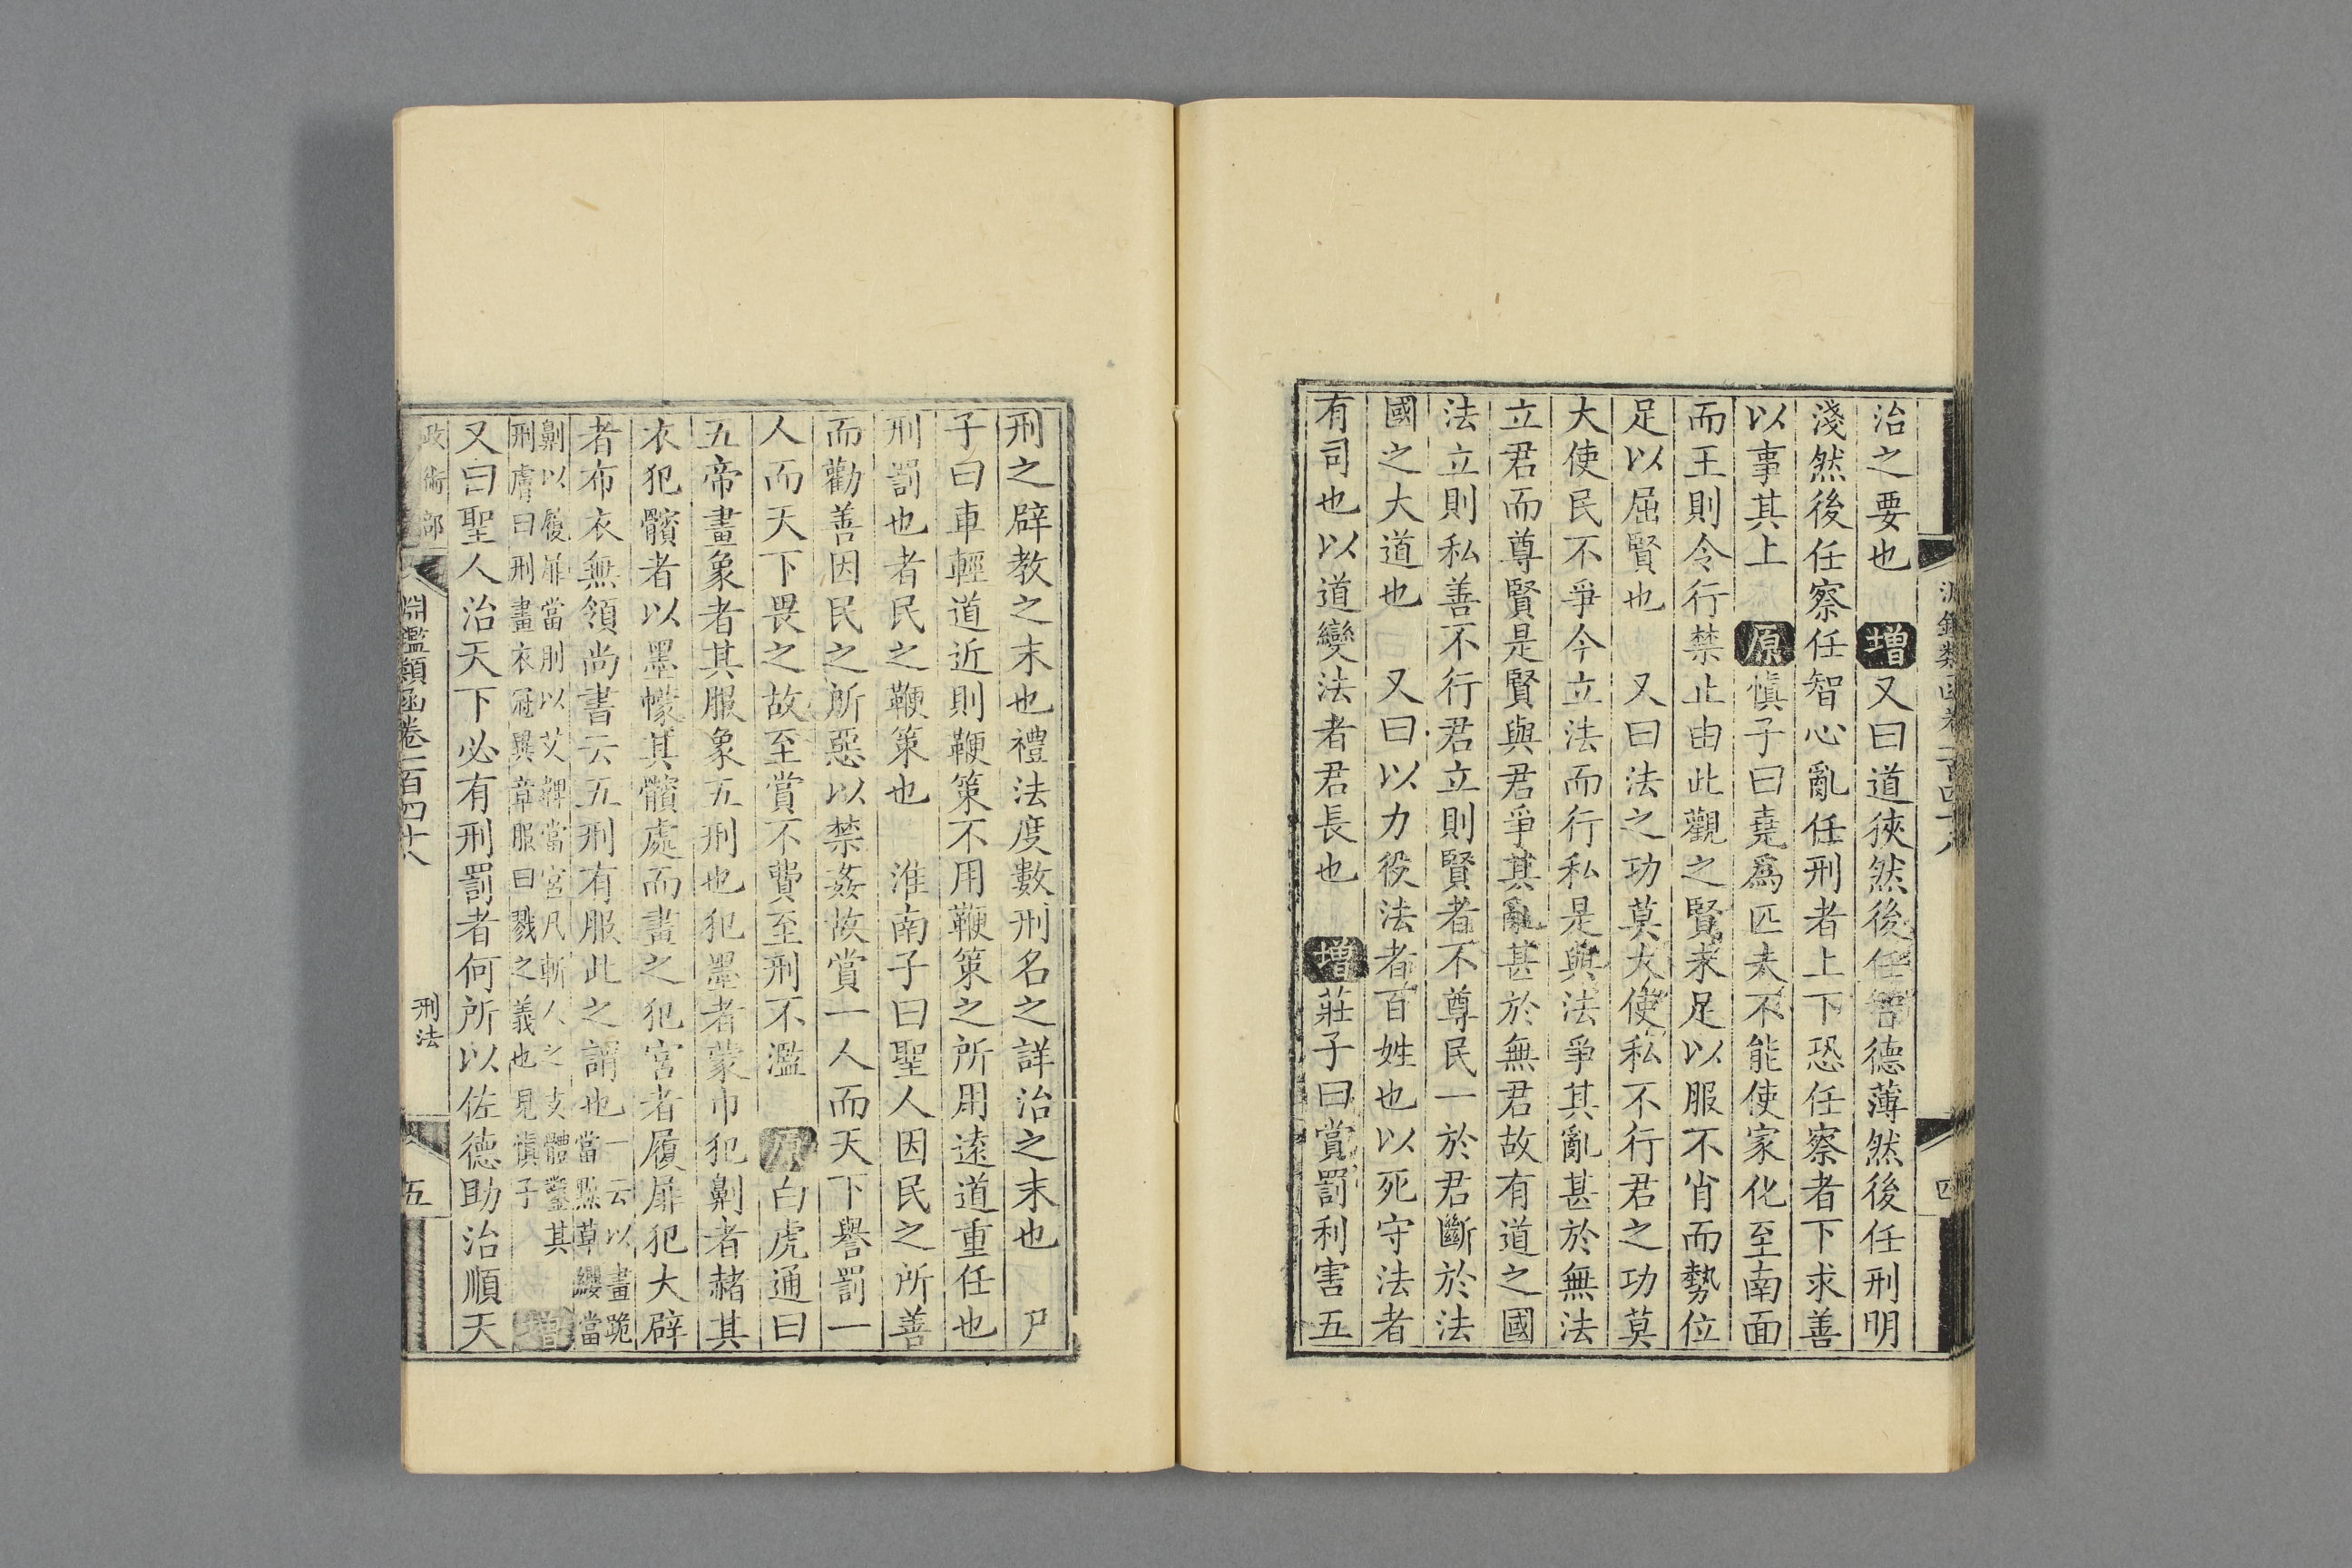 治之要也　增又曰道狹然後任智德薄然後任刑明
淺然後任察任智心亂任刑者上下恐任察者下求善
以事其上　原慎子曰堯爲匹夫不能使家化至南面
而王則令行禁止由此觀之賢未足以服不肖而勢位
足以屈賢也　又曰法之功莫大使私不行君之功莫
大使民不爭今立法而行私是與法爭其亂甚於無法
立君而尊賢是賢與君爭其亂甚於無君故有道之國
法立則私善不行君立則賢者不尊民一於君斷於法
國之大道也　又曰以力役法者百姓也以死守法者
有司也以道變法者君長也　增莊子曰賞罰利害五
刑之辟教之末也禮法度數刑名之詳治之末也　尸
子曰車輕道近則鞭策不用鞭策之所用遠道重任也
刑罰也者民之鞭策也　淮南子曰聖人因民之所善
而勸善因民之所惡以禁姦故賞一人而天下譽罰一
人而天下畏之故至賞不費至刑不濫　原白虎通曰
五帝畫象者其服象五刑也犯墨者蒙巾犯劓者赭其
衣犯髕者以墨幪其髕處而畫之犯宮者履屝犯大辟
者布衣無領尚書云五刑有服此之謂也一云以畫跪當黥草纓當
劓以履屝當刖以艾韠當宮凡斬人之支體鑿其刑膚曰刑畫衣冠異章服曰戮之義也見慎子　增
又曰聖人治天下必有刑罰者何所以佐德助治順天
政術部　淵鑑類函卷一百四十八　刑法　五